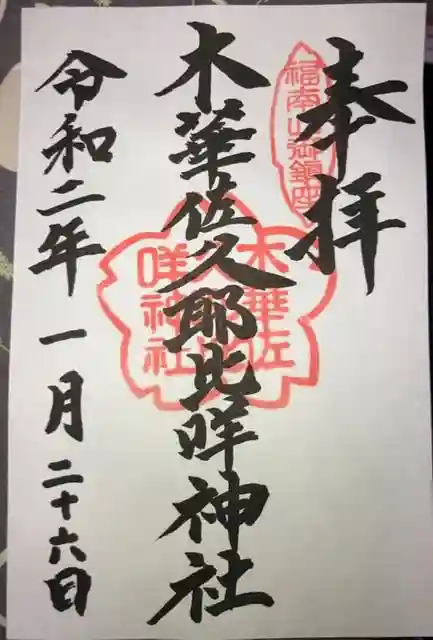 奉拝
福南山御鎮座
木華佐久耶比咩神社
木華佐
咩神社
令和二年 一月 二十六日